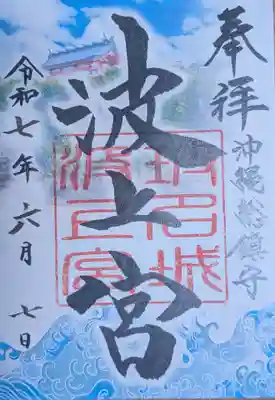 奉拝
沖縄総鎮守
波上宮
琉球城
波上宮
令和七年六月七日